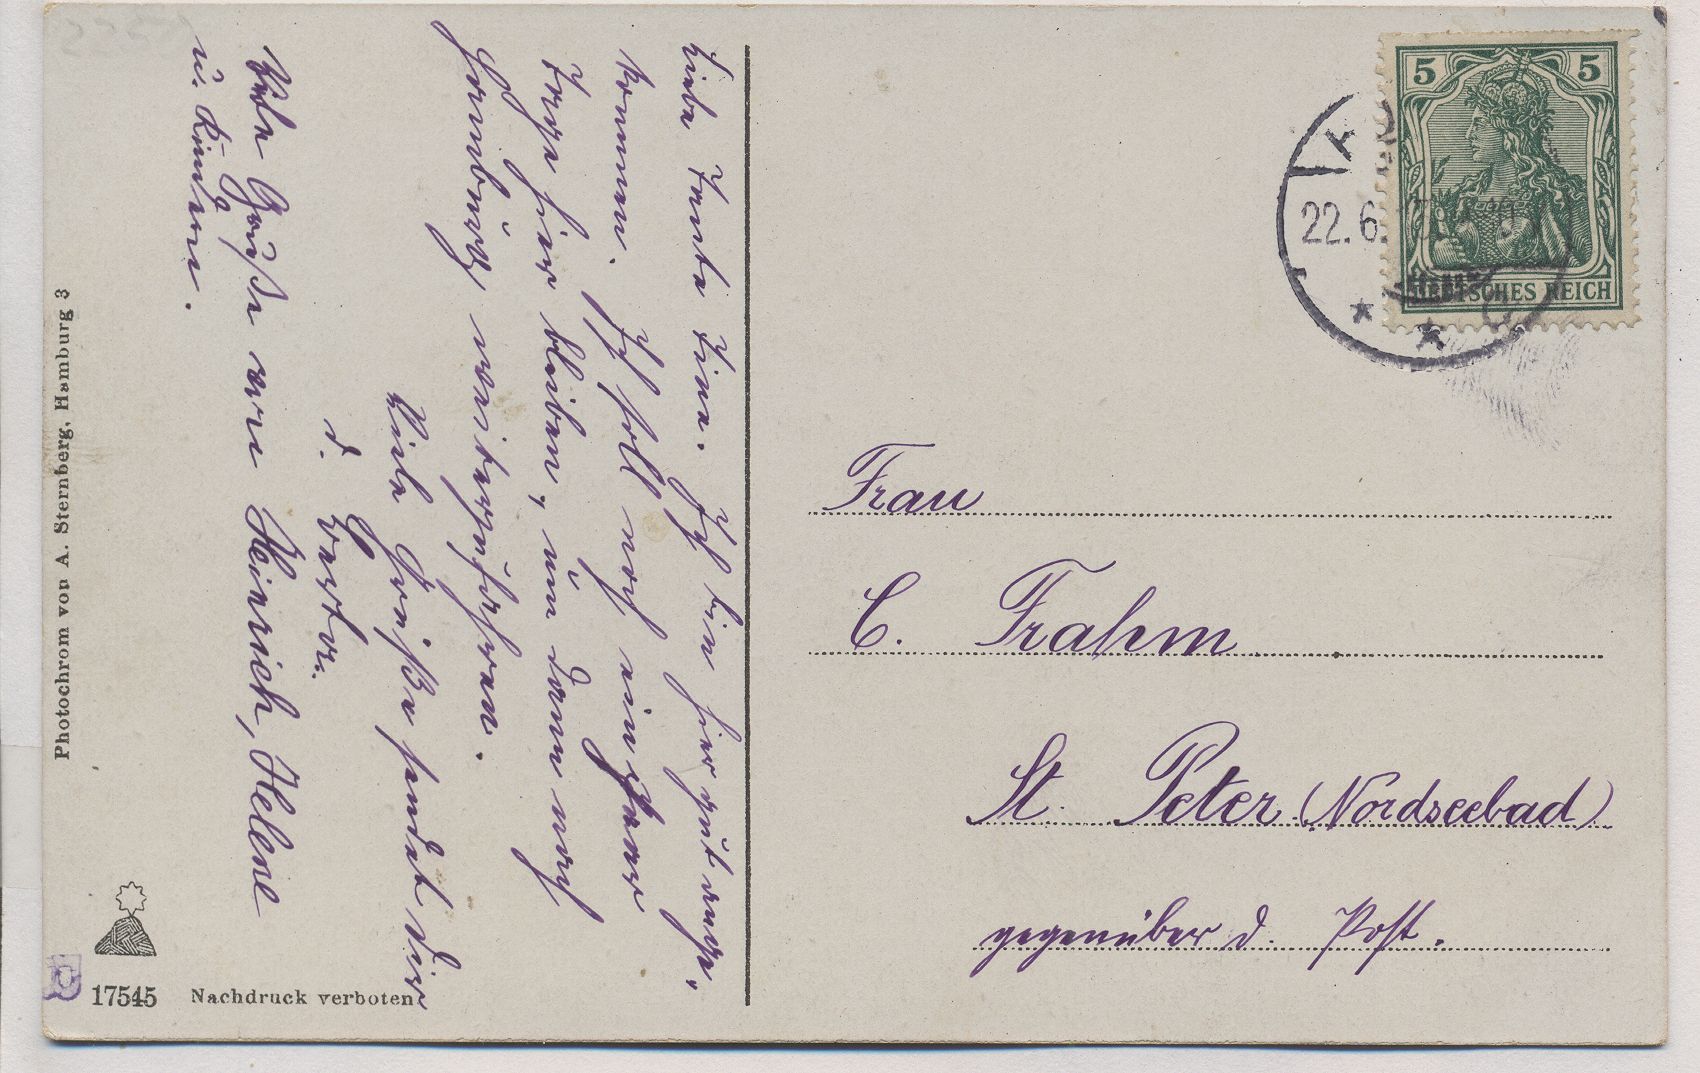 Liebe Tante Tine. Ich bin hier gut ange-
kommen. Ich soll noch ein paar
Tage hier bleiben, um dann nach
Hamburg weiterzufahren.
Viele Grüße sendet Dir
d.
Viele Grüße von Heinrich, Helene
u. Kindern.
Photochrom von A. Sternberg, Hamburg 3
17545 Nachdruck verboten
5 5
DEUTSCHES REICH
22.6.
Frau
C. Frahm
St. Peter (Nordseebad)
gegenüber d. Post.